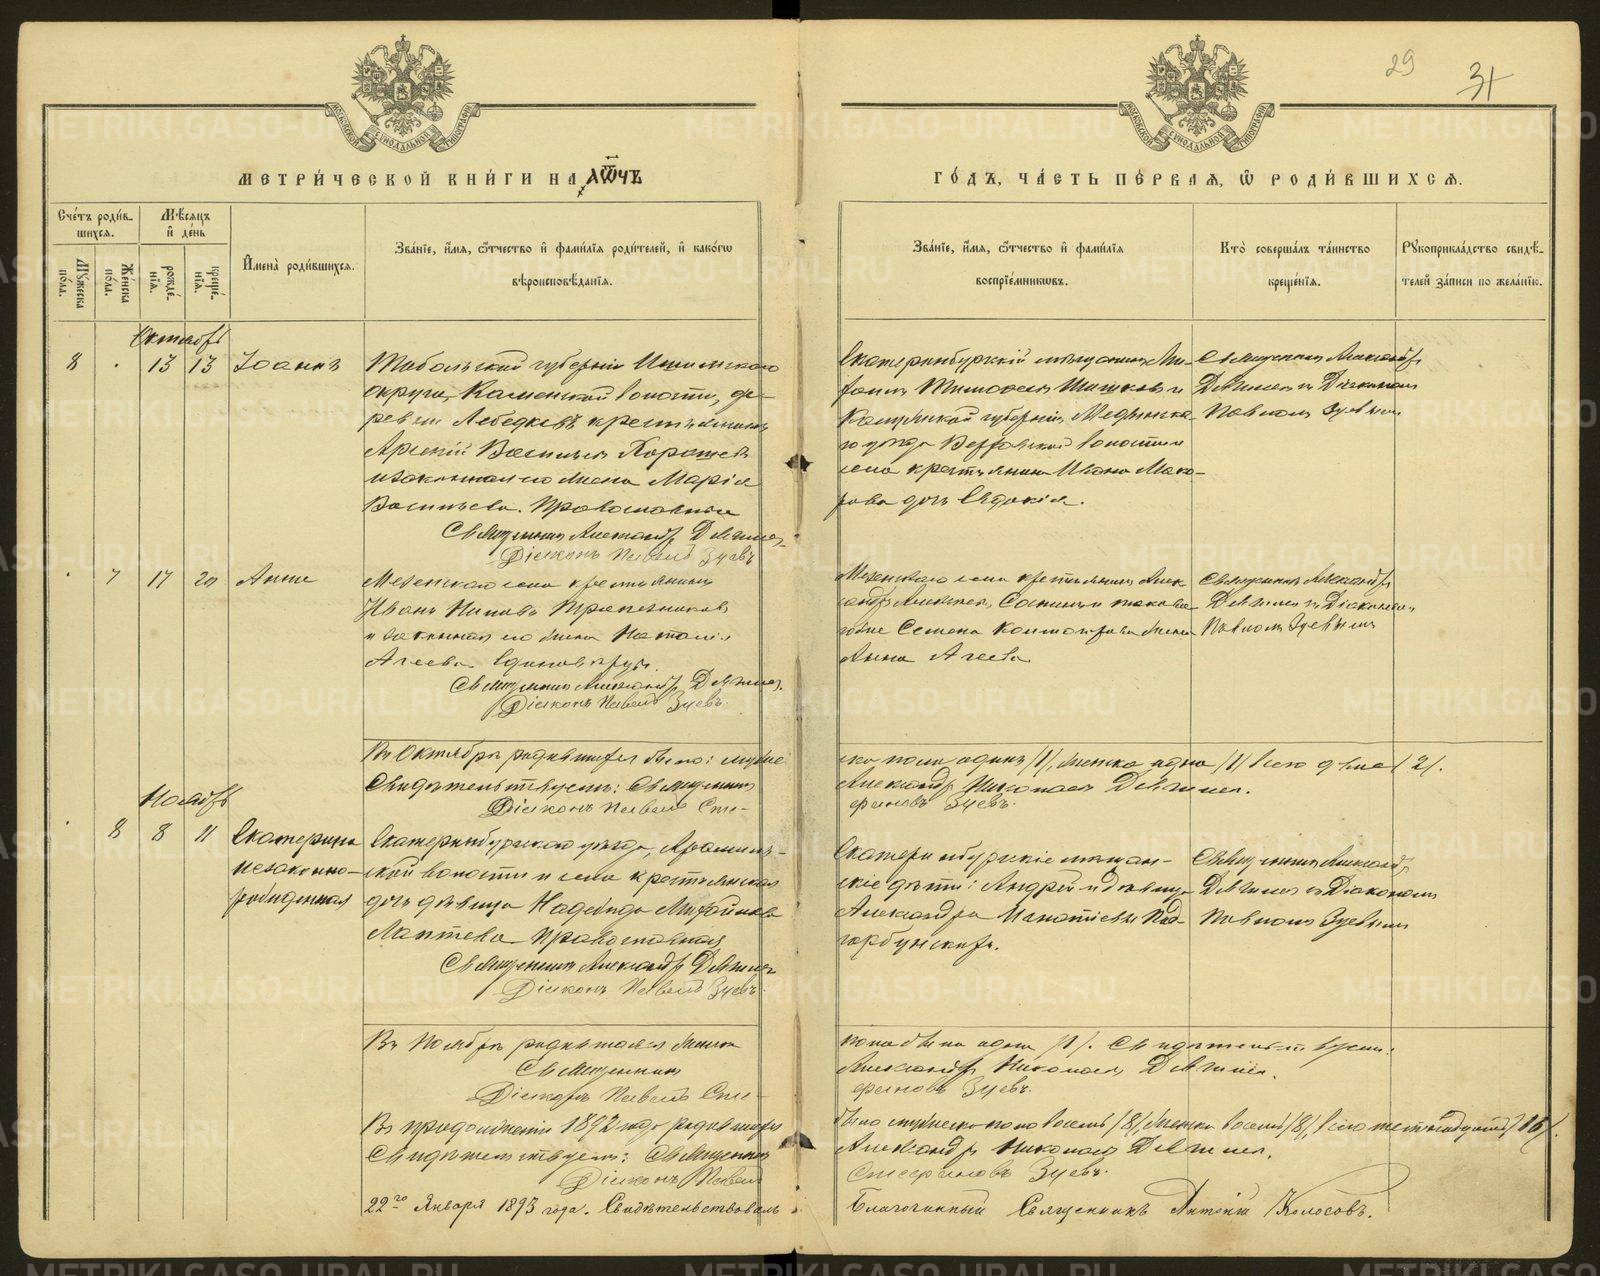 29
31
МЕТРИ́ЧЕСКОЙ КНИ́ГИ НА АѾЧВ
ГО́ДЪ, ЧА́СТЬ ПЕ́РВАЯ, Ѽ РОДИ́ВШИХСЯ.
Сче́тъ роди́вшихся.
Мѣ́сяцъ и҆ де́нь
Мꙋ́жеска по́ла.
Же́нска по́ла.
рожде́нїя.
креще́нїя.
И҆мена̀ роди́вшихся.
Зва́нїе, и҆́мя, ѻ҆́тчество и҆ фами́лїя роди́телей, и҆ како́гѡ
вѣроисповѣ́данїя.
Зва́нїе, и҆́мя, ѻ҆́тчество и҆ фами́лїя
воспрїе́мникѡвъ.
Кто̀ соверша́лъ та́инство
креще́нїя.
Рꙋкоприкла́дство свидѣ́телей за́писи по жела́нїю.
Октябрь
8 . 13 13 Іоаннъ
Тобольской губерніи Ишимскаго
округа, Каменской волости, де-
ревни Лебедкевъ крестьянинъ
Арсеній Васильевъ
и законная его жена Марія
Васильева. Православные
Священникъ Александръ
Діаконъ Павелъ Зуевъ
Екатеринбургскій мѣщанинъ
Тимофеевъ Шишковъ и
Калужской губерніи, Медынска-
го уѣзда волости и
села крестьянина Ивана Мака-
рова дочь Евдокія.
Священникъ Александръ
съ Діакономъ
Павломъ Зуевымъ
. 7 17 20 Анна
Мезенскаго села крестьянинъ
Иванъ Ниловъ Трапезниковъ
и законная его жена Наталія
Агеева. Единовѣрцы.
Священникъ Александръ
Діаконъ Павелъ Зуевъ.
Мезенскаго села крестьянинъ Алек-
сандръ
Семена жена
Анна Агеева
Священникъ Александръ
съ Діакономъ
Павломъ Зуевымъ
Въ Октябрѣ родившихся было: муже-
ска пола одинъ /1/, женска одна /1/ всего двое /2/.
Свидѣтельствуемъ: Священникъ
Александръ Николаевъ
Діаконъ Павелъ Сте-
фановъ Зуевъ.
Ноябрь
. 8 8 11 Екатерина
незаконно-
рожденная
Екатеринбургскаго уѣзда, Арамиль-
ской волости и села крестьянская
дочь дѣвица Надежда Михайлова
Лаптева Православная
Священникъ Александръ
Діаконъ Павелъ Зуевъ.
Екатеринбургскіе мѣщан-
скіе дѣти: Андрей и дѣвица
Александра Игнатіевы Под-
горбунскихъ.
Священникъ Александръ
съ Діакономъ
Павломъ Зуевымъ
Въ Ноябрѣ родившаяся женска
пола была одна /1/. Свидѣтельствуемъ:
Священникъ
Александръ Николаевъ
Діаконъ Павелъ Сте-
фановъ Зуевъ.
Въ продолженіи 1892 года родившихся
было мужеска пола восемь /8/, женска восемь /8/, всего шестнадцать /16/.
Свидѣтельствуемъ: Священникъ
Александръ Николаевъ
Діаконъ Павелъ
Стефановъ Зуевъ.
22го Января 1893 года. Свидѣтельствовалъ
Благочинный Священникъ Антоній Колосовъ.